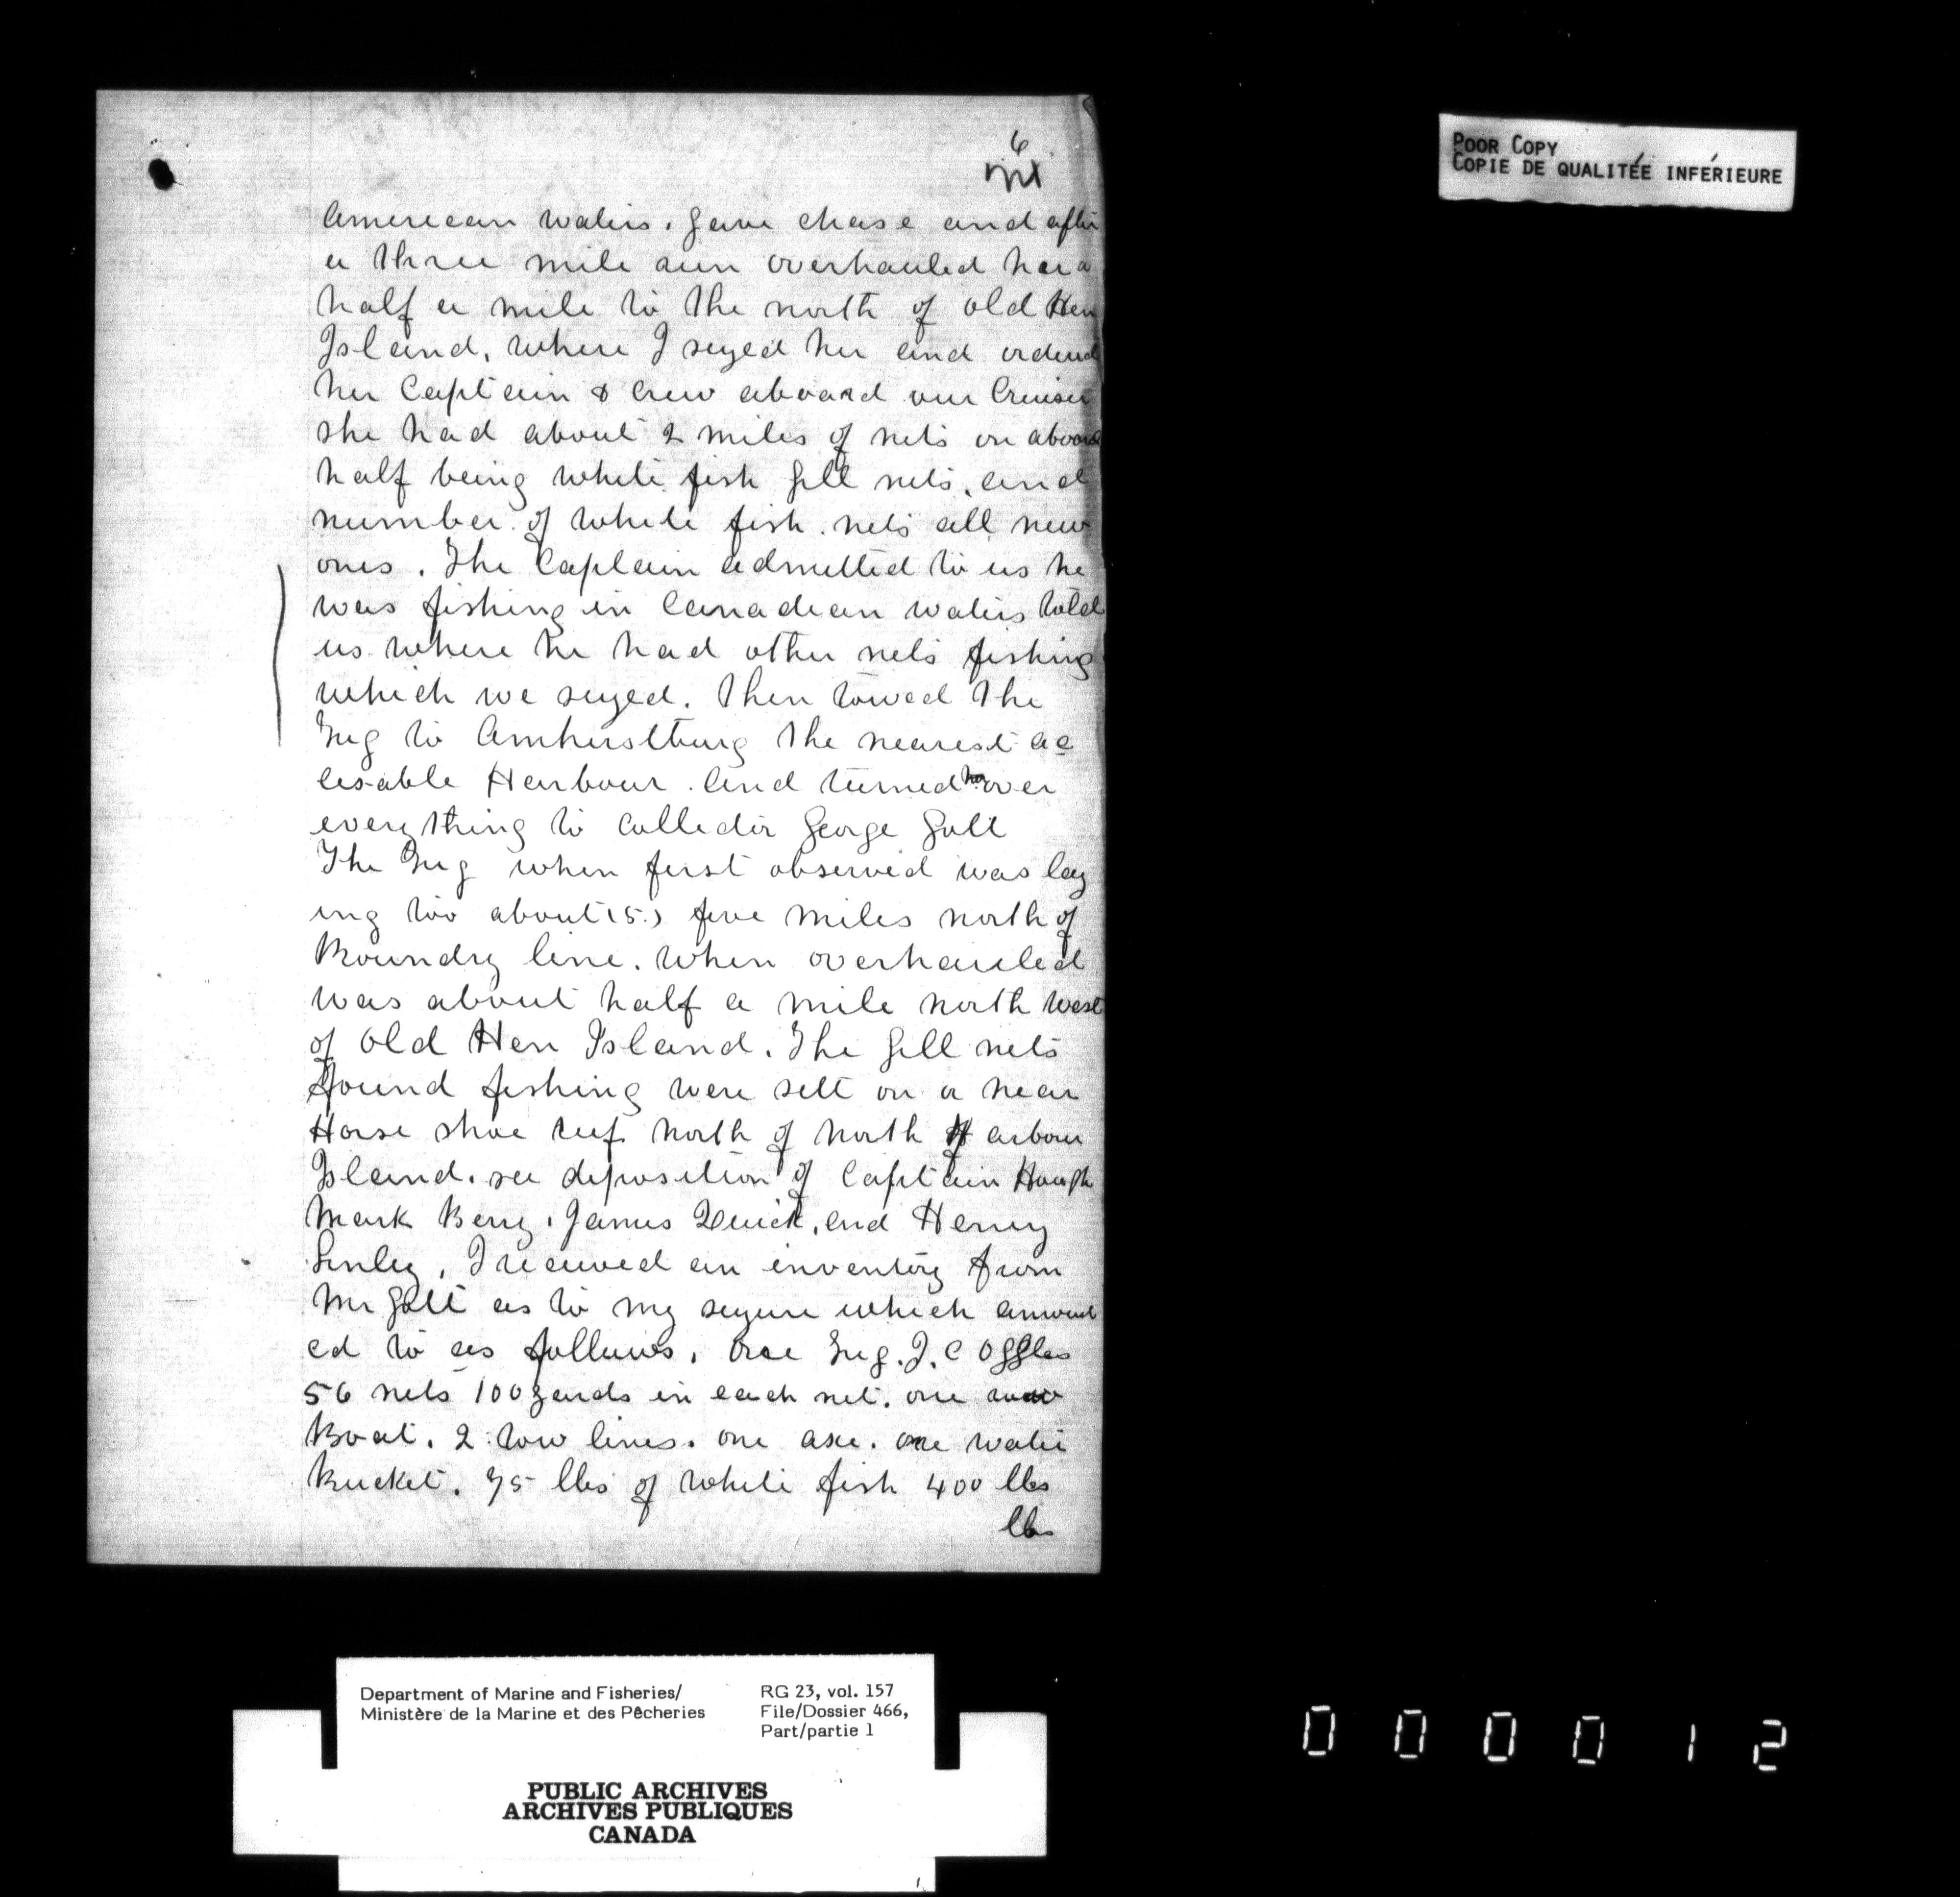 6
POOR COPY
COPIE DE QUALITÉE INFÉRIEURE
American waters. gave chase and after
a three mile run overhauled her a
half a mile to the north of old Hen
Island, where I seyed her and ordered
her Captain & crew aboard our Cruiser
she had about 2 miles of nets on aboard
half being white fish gill nets, and
number of white fish nets all new
ones. The Captain admitted to us he
was fishing in Canadian waters told
us where he had other nets fishing
which we seyed. Then towed the
Tug to Amhurstburg the nearest ac
cesable Harbour. And turned her over
everything to collector George Gott
The Tug when first observed was lay
ing too about (5.) five miles north of
Boundry line. When overhauled
was about half a mile north west
of Old Hen Island. The gill nets
found fishing were sett on a near
Horse shoe reef north of north Harbour
Island. see deposition of Captain Hough
Mark Berry, James Quick, and Henry
I received an inventory from
Mr Gott as to my seyure which amount
ed to as follows. One Tug. J. C Oggles
56 nets 100 yards in each net. one row
Boat. 2 tow lines. one axe. one water
Bucket. 75 lbs of white fish 400 lbs
lbs
Department of Marine and Fisheries/
Ministère de la Marine et des Pêcheries
RG 23, vol. 157
File/Dossier 466,
Part/partie 1
PUBLIC ARCHIVES
ARCHIVES PUBLIQUES
CANADA
000012